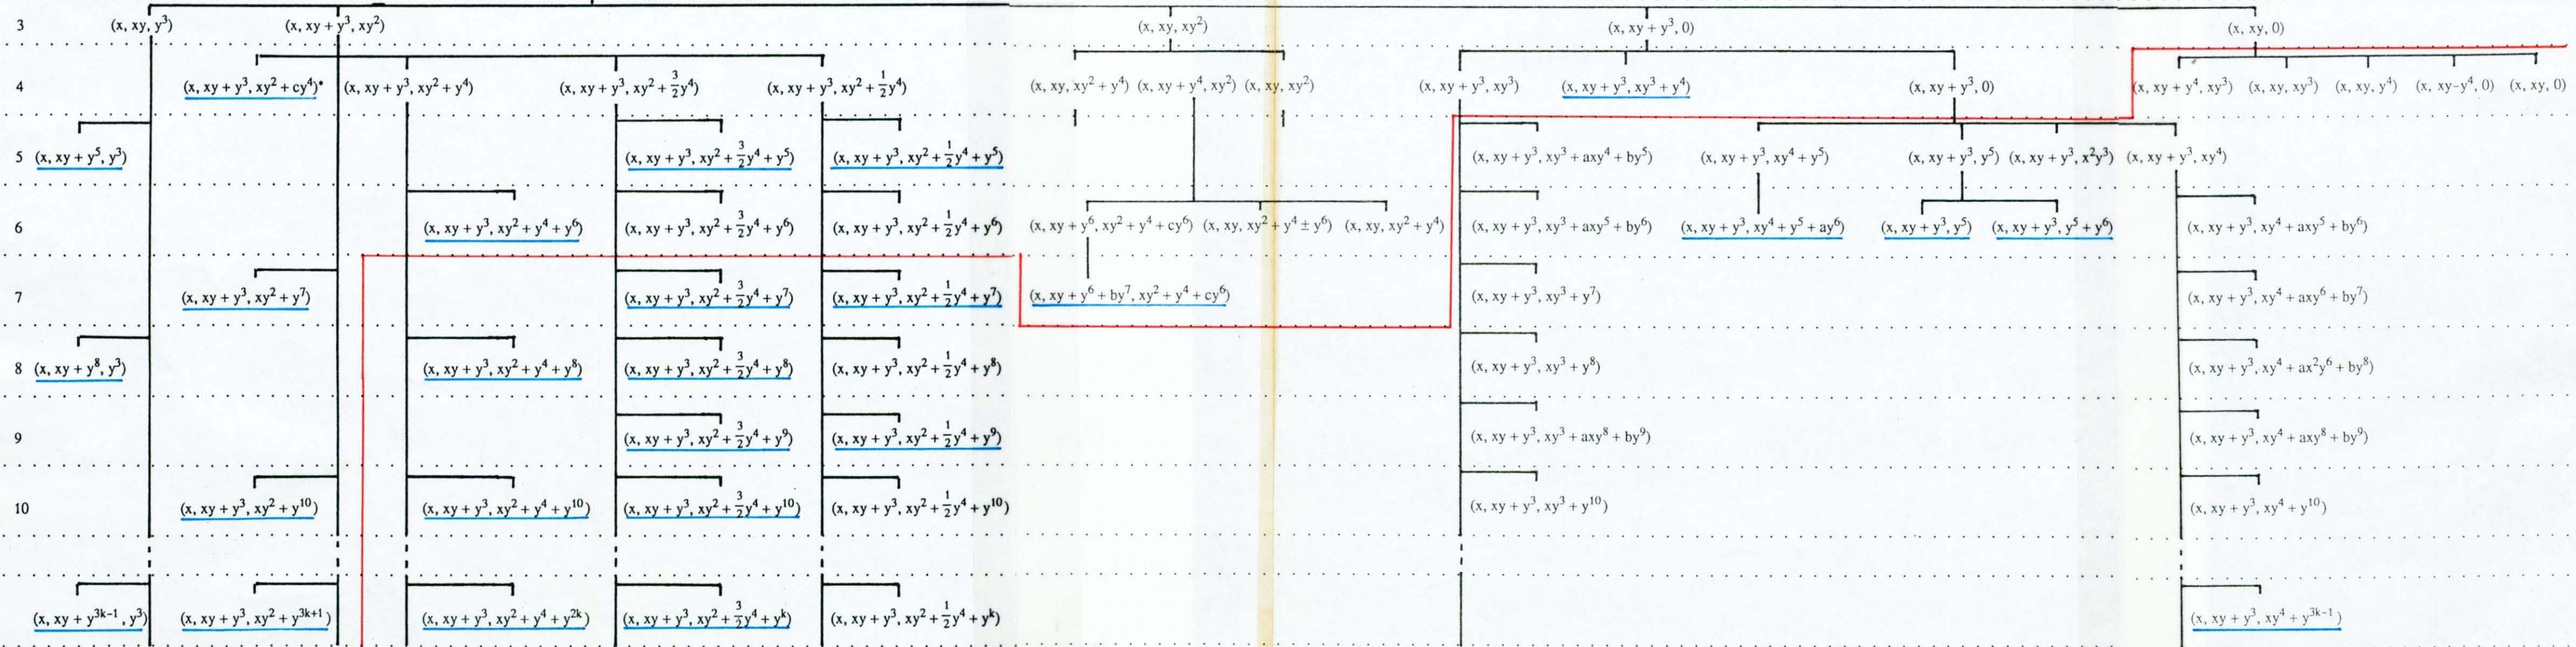 3 (x, xy, y³) (x, xy + y³, xy²) (x, xy, xy²) (x, xy + y³, 0) (x, xy, 0)
4 (x, xy + y³, xy² + cy⁴)* (x, xy + y³, xy² + y⁴) (x, xy + y³, xy² + 3/2y⁴) (x, xy + y³, xy² + 1/2y⁴) (x, xy, xy² + y⁴) (x, xy + y⁴, xy²) (x, xy, xy²) (x, xy + y³, xy³) (x, xy + y³, xy³ + y⁴) (x, xy + y³, 0) (x, xy + y⁴, xy³) (x, xy, xy³) (x, xy, y⁴) (x, xy-y⁴, 0) (x, xy, 0)
5 (x, xy + y⁵, y³) (x, xy + y³, xy² + 3/2y⁴ + y⁵) (x, xy + y³, xy² + 1/2y⁴ + y⁵) (x, xy + y³, xy³ + axy⁴ + by⁵) (x, xy + y³, xy⁴ + y⁵) (x, xy + y³, y⁵) (x, xy + y³, x²y³) (x, xy + y³, xy⁴)
6 (x, xy + y³, xy² + y⁴ + y⁶) (x, xy + y³, xy² + 3/2y⁴ + y⁶) (x, xy + y³, xy² + 1/2y⁴ + y⁶) (x, xy + y⁶, xy² + y⁴ + cy⁶) (x, xy, xy² + y⁴ ± y⁶) (x, xy, xy² + y⁴) (x, xy + y³, xy³ + axy⁵ + by⁶) (x, xy + y³, xy⁴ + y⁵ + ay⁶) (x, xy + y³, y⁵) (x, xy + y³, y⁵ + y⁶) (x, xy + y³, xy⁴ + axy⁵ + by⁶)
7 (x, xy + y³, xy² + y⁷) (x, xy + y³, xy² + 3/2y⁴ + y⁷) (x, xy + y³, xy² + 1/2y⁴ + y⁷) (x, xy + y⁶ + by⁷, xy² + y⁴ + cy⁶) (x, xy + y³, xy³ + y⁷) (x, xy + y³, xy⁴ + axy⁶ + by⁷)
8 (x, xy + y⁸, y³) (x, xy + y³, xy² + y⁴ + y⁸) (x, xy + y³, xy² + 3/2y⁴ + y⁸) (x, xy + y³, xy² + 1/2y⁴ + y⁸) (x, xy + y³, xy³ + y⁸) (x, xy + y³, xy⁴ + ax²y⁶ + by⁸)
9 (x, xy + y³, xy² + 3/2y⁴ + y⁹) (x, xy + y³, xy² + 1/2y⁴ + y⁹) (x, xy + y³, xy³ + axy⁸ + by⁹) (x, xy + y³, xy⁴ + axy⁸ + by⁹)
10 (x, xy + y³, xy² + y¹⁰) (x, xy + y³, xy² + y⁴ + y¹⁰) (x, xy + y³, xy² + 3/2y⁴ + y¹⁰) (x, xy + y³, xy² + 1/2y⁴ + y¹⁰) (x, xy + y³, xy³ + y¹⁰) (x, xy + y³, xy⁴ + y¹⁰)
(x, xy + y³ᵏ⁻¹, y³) (x, xy + y³, xy² + y³ᵏ⁺¹) (x, xy + y³, xy² + y⁴ + y²ᵏ) (x, xy + y³, xy² + 3/2y⁴ + yᵏ) (x, xy + y³, xy² + 1/2y⁴ + yᵏ) (x, xy + y³, xy⁴ + y³ᵏ⁻¹)